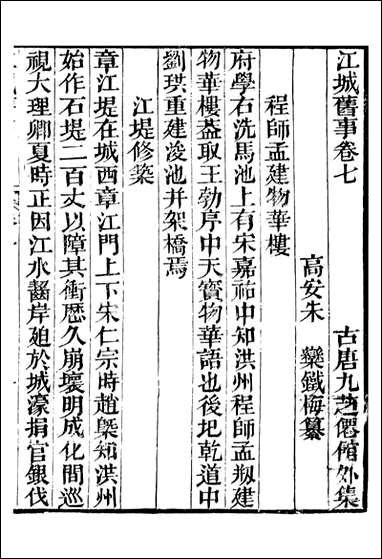 江城舊事卷七
古唐九芝僊館外集
高安朱 欒鐵梅纂
程師孟建物華樓
府學右洗馬池上有宋嘉祐中知洪州程師孟剏建
物華樓蓋取王勃序中天寶物華語也後圮乾道中
劉珙重建浚池并架橋焉
江堤修築
章江堤在城西章江門上下宋仁宗時趙㮣知洪州
始作石堤二百丈以障其衝歷久崩壞明成化間巡
視大理卿夏時正因江水齧岸廹於城濠捐官銀伐